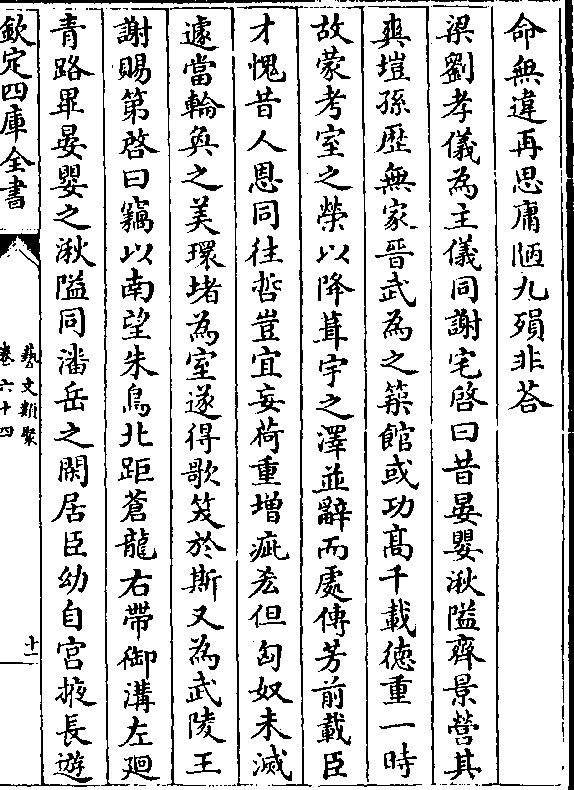 命無違再思庸陋九殞非荅
梁劉孝儀為主儀同謝宅啓曰昔晏嬰湫隘齊景營其
爽塏孫歷無家晉武為之築館或功髙千載徳重一時
故蒙考室之榮以降葺宇之澤並辭而處傳芳前載臣
才愧昔人恩同往哲豈宜妄荷重増疵忝但匈奴未滅
遽當輪奐之美環堵為室遂得歌笑於斯又為武陵王
謝賜第啓曰竊以南望朱鳥北距蒼龍右帶御溝左廻
青路畢晏嬰之湫隘同潘岳之閑居臣幼自宫掖長遊
欽定四庫全書
藝文類聚
卷六十四
十一